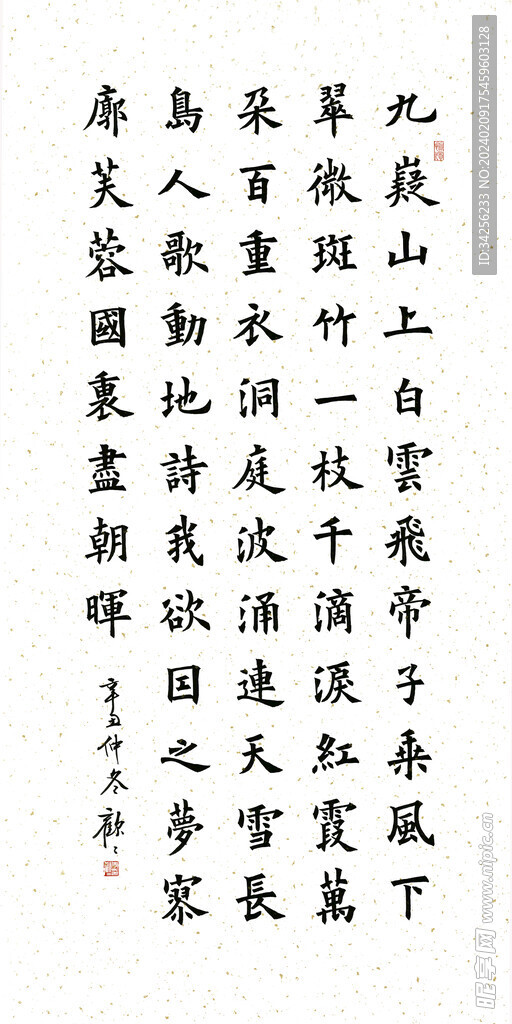 九嶷山上白雲飛帝子乘風下
翠微斑竹一枝千滴淚紅霞萬
朵百重衣洞庭波涌連天雪長
島人歌動地詩我欲因之夢寥
廓芙蓉國裏盡朝暉
辛丑仲冬歡〻
ID:34256233 NO:20240209175459603128
昵享网 www.nipic.cn